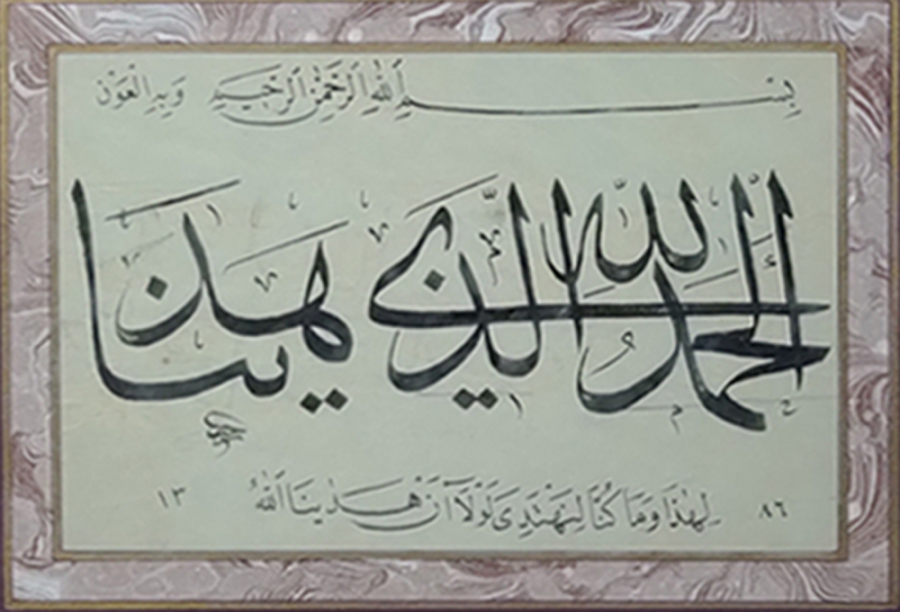 بِسْمِ اللهِ الرَّحْمٰنِ الرَّحِيمِ وَبِهِ الْعَوْنُ
الحمد لله الذى هدينا
٨٦ لِهٰذَا وَمَا كُنَّا لِنَهْتَدِىَ لَوْلَا أَنْ هَدٰينَا اللهُ ١٣